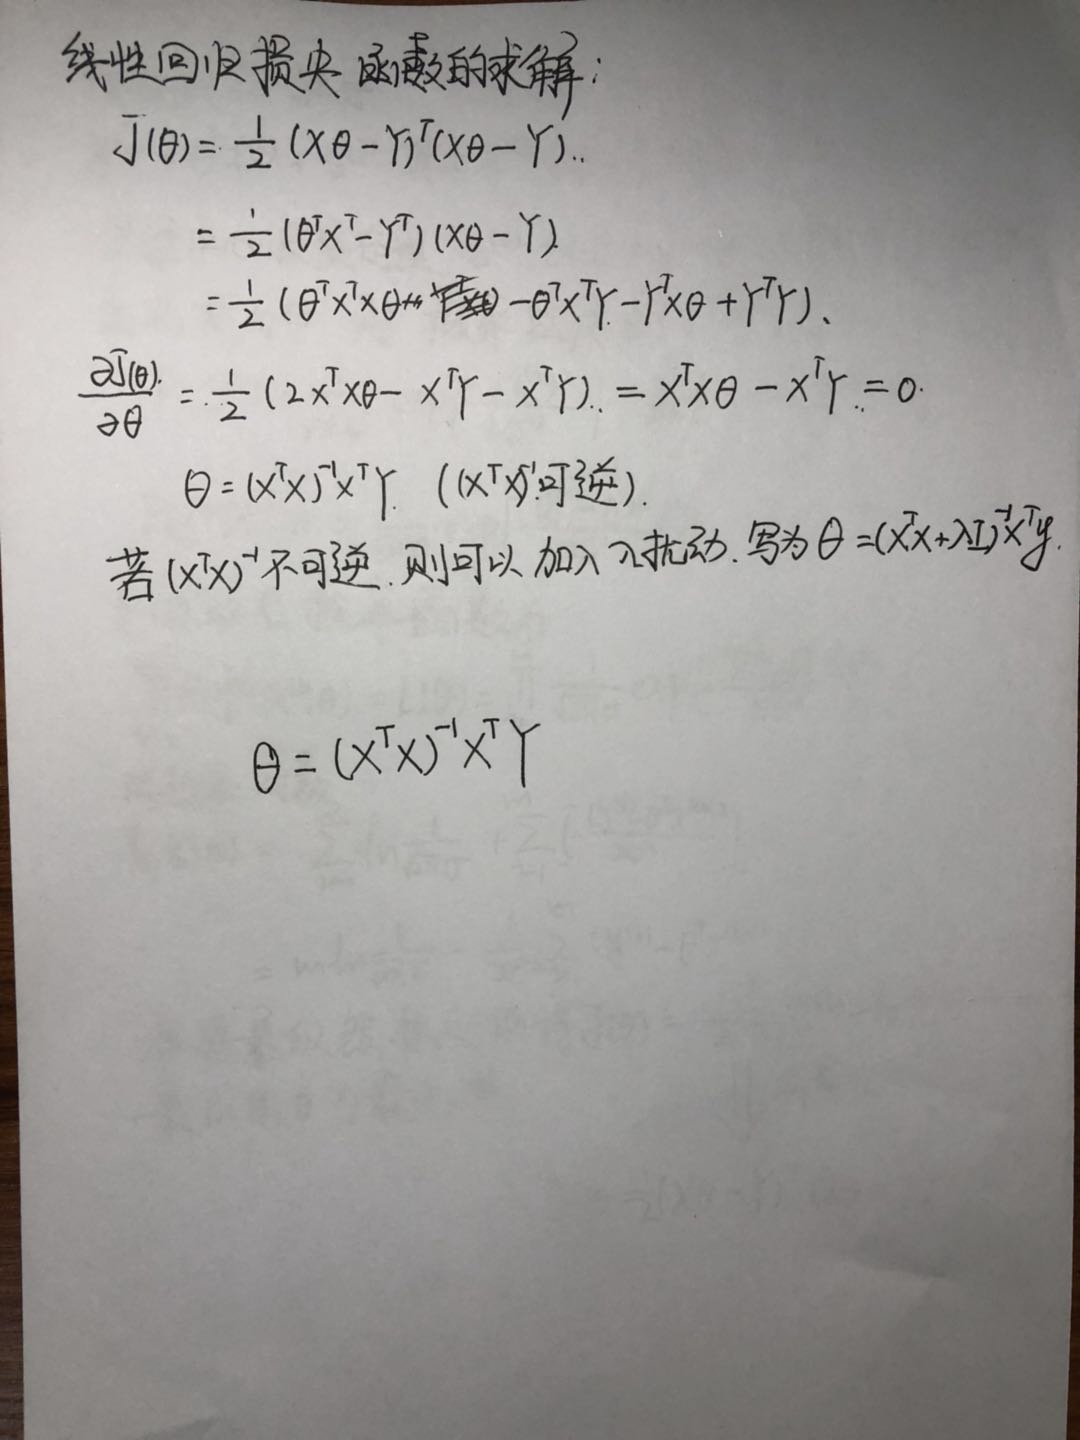 线性回归损失函数的求解:
J(θ) = 1/2 (Xθ - Y)ᵀ(Xθ - Y)
= 1/2 (θᵀXᵀ - Yᵀ)(Xθ - Y)
= 1/2 (θᵀXᵀXθ - θᵀXᵀY - YᵀXθ + YᵀY)、
∂J(θ)/∂θ = 1/2 (2XᵀXθ - XᵀY - XᵀY) = XᵀXθ - XᵀY = 0
θ = (XᵀX)⁻¹XᵀY ((XᵀX)⁻¹可逆).
若(XᵀX)⁻¹不可逆.则可以加入λ扰动.写为θ = (XᵀX + λI)⁻¹Xᵀy.
θ = (XᵀX)⁻¹XᵀY